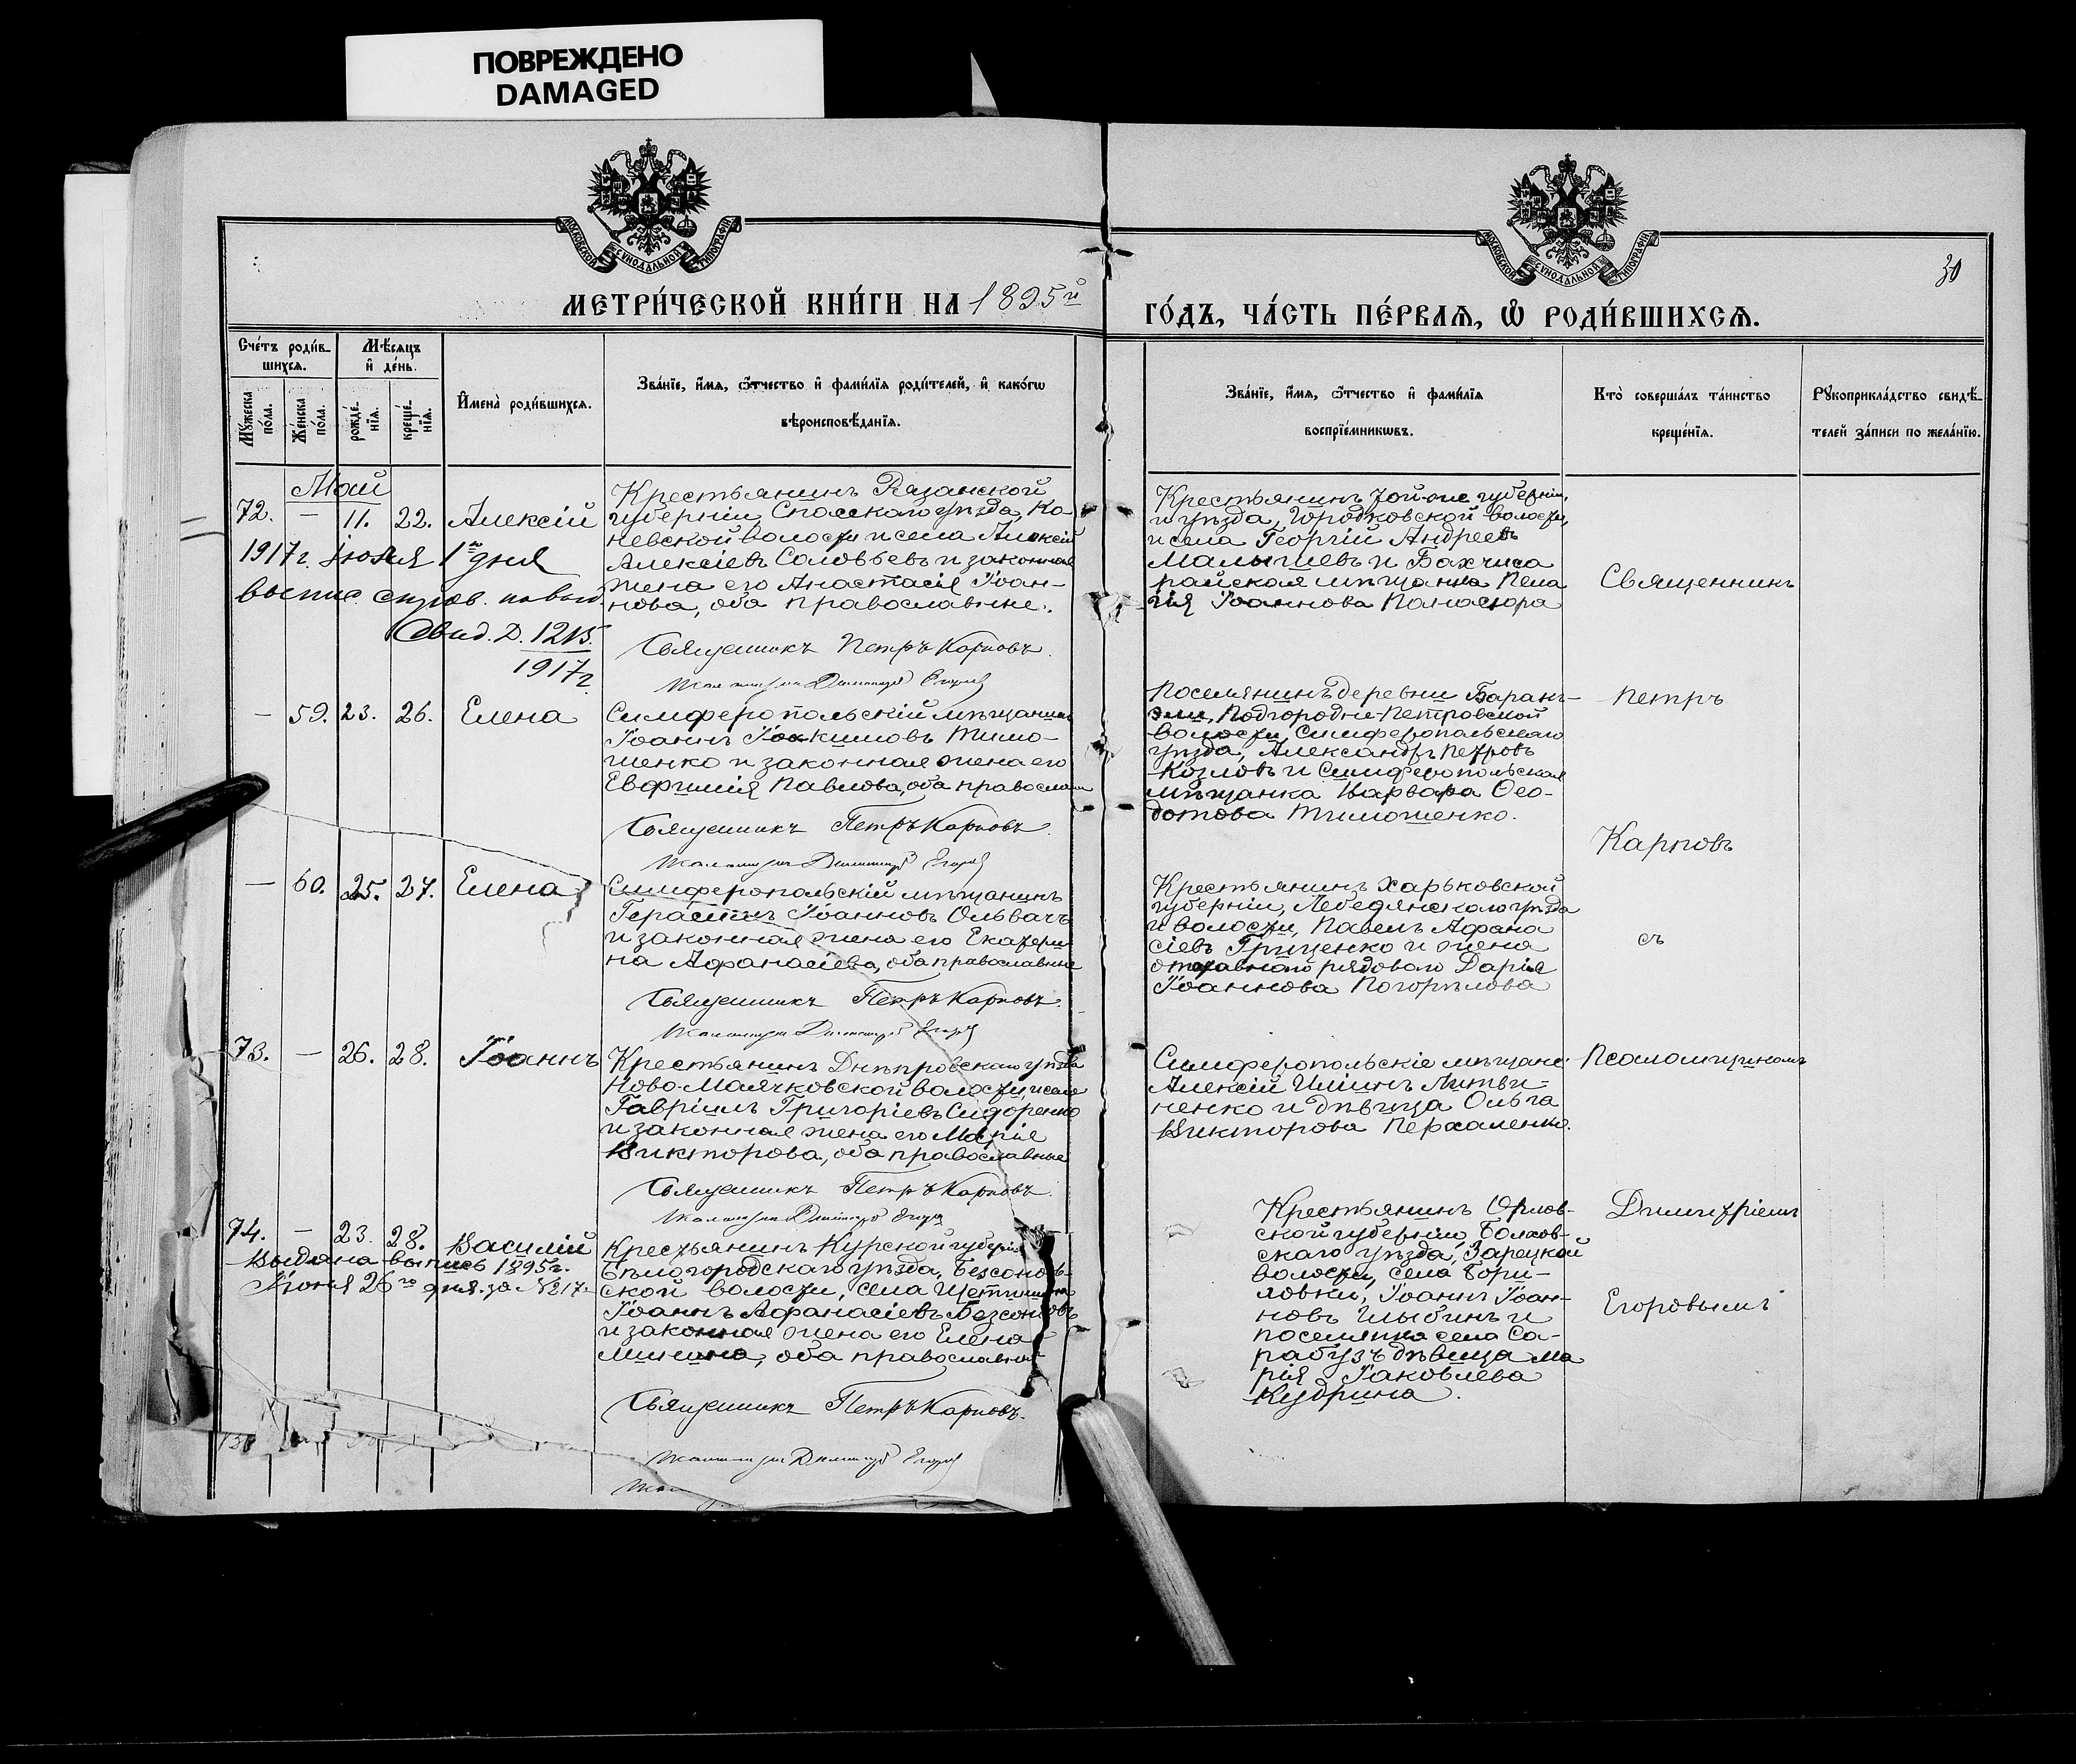 ПОВРЕЖДЕНО
DAMAGED
МОСКОВСКОЙ СѴНОДАЛЬНОЙ ТИПОГРАФІИ
МОСКОВСКОЙ СѴНОДАЛЬНОЙ ТИПОГРАФІИ
30
МЕТРИ́ЧЕСКОЙ КНИ́ГИ НА 1895й
ГО́ДЪ, ЧА́СТЬ ПЕ́РВАѦ, Ѿ РОДИ́ВШИХСѦ.
Сче́тъ роди́в-
шихсѧ.
Мꙋ́жеска по́ла.
Же́нска по́ла.
Мѣ́сѧцъ
и҆ де́нь.
рожде́-
нїѧ.
креще́-
нїѧ.
И҆мена̀ роди́вшихсѧ.
Зва́нїе, и҆́мѧ, ѻ҆́тчество и҆ фами́лїѧ роди́телей, и҆ како́гѡ
вѣроисповѣ́данїѧ.
Зва́нїе, и҆́мѧ, ѻ҆́тчество и҆ фами́лїѧ
воспрїе́мникѡвъ.
Кто̀ соверша́лъ та́инство
креще́нїѧ.
Рꙋкоприкла́дство свидѣ́-
телей за́писи по жела́нїю.
Май
72. — 11. 22. Алексій
1917г. Іюня 1го дня
выпис.
Свид. 1215.
1917г.
Крестьянинъ Рязанской
губерніи Спасскаго уѣзда, Ка-
невской волости и села Алексій
Алексіевъ Соловьевъ и законная
жена его Анастасія Іоан-
нова, оба православные.
Священникъ Петръ Карповъ.
Псаломщикъ Димитрій Егоровъ
Крестьянинъ губерніи,
и уѣзда, Городковской волости,
и села Георгій Андреевъ
Малышевъ и Бахчиса
райская мѣщанка Пела
гія Іоаннова
Священникъ
— 59. 23. 26. Елена
Симферопольскій мѣщанинъ
Іоаннъ Іоакимовъ Тимо-
шенко и законная жена его
Евфимія Павлова, оба православн
Священникъ Петръ Карповъ.
Псаломщикъ Димитрій Егоровъ
Поселянинъ деревни Баранъ-
эли, Подгородне-Петровской
волости, Симферопольскаго
уѣзда, Александръ Петровъ
Козловъ и Симферопольская
мѣщанка Варвара Ѳео-
дотова Тимошенко.
Петръ
Карповъ
— 60. 25. 27. Елена
Симферопольскій мѣщанинъ
Герасимъ Іоанновъ Ольвачъ
и законная жена его Екатери
на Афанасіева, оба православные
Священникъ Петръ Карповъ.
Псаломщикъ Димитрій Егоровъ
Крестьянинъ Харьковской
губерніи, Лебедянскаго уѣзда
и волости, Павелъ Афана
сіевъ Грищенко и жена
отставнаго рядоваго Дарія
Іоаннова Погорѣлова
съ
73. — 26. 28. Іоаннъ
Крестьянинъ Днѣпровскаго уѣзда
Ново-Маячковской волости, и села
Гавріилъ Григоріевъ Сидоренко
и законная жена его Марія
Викторова, оба православные
Священникъ Петръ Карповъ.
Псаломщикъ Димитрій Егоровъ
Симферопольскіе мѣщане
Алексій Литви-
ненко и дѣвица Ольга
Викторова Перхаленко.
Псаломщикомъ
74. — 23. 28. Василій
Выдана выпись 1895г.
Іюня 26го дня за №217.
Крестьянинъ Курской губерніи
Бѣлогородскаго уѣзда, Безсонов-
ской волости, села
Іоаннъ Афанасіевъ Безсоновъ
и законная жена его Елена
Минина, оба православные
Священникъ Петръ Карповъ.
Псаломщикъ Димитрій Егоровъ
Крестьянинъ Орлов-
ской губерніи, Болхов-
скаго уѣзда, Зарецкой
волости, села Бори-
ловки, Іоаннъ Іоан-
новъ и
поселянка села Са-
рабузъ дѣвица Ма
рія Іаковлева
Кудрина.
Димитріемъ
Егоровымъ